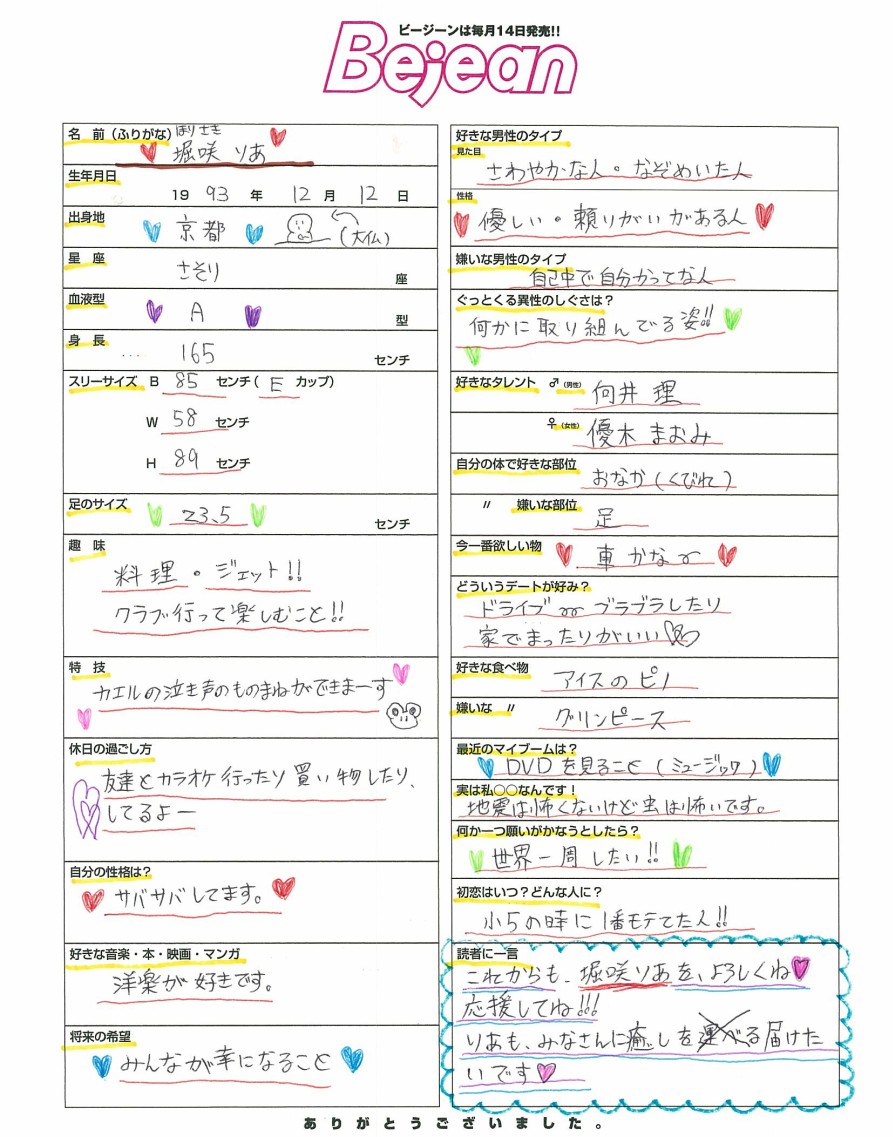 ビージーンは毎月14日発売!!
Bejean
名 前（ふりがな） ほりさき
堀咲 りあ
生年月日
19 93 年 12 月 12 日
出身地
京都 (大仏)
星 座
さそり 座
血液型
A 型
身 長
165 センチ
スリーサイズ B 85 センチ( E カップ)
W 58 センチ
H 89 センチ
足のサイズ
23.5 センチ
趣 味
料理・ジェット!!
クラブ行って楽しむこと!!
特 技
カエルの泣き声のものまねができまーす
休日の過ごし方
友達とカラオケ行ったり買い物したり、
してるよー
自分の性格は？
サバサバしてます。
好きな音楽・本・映画・マンガ
洋楽が好きです。
将来の希望
みんなが幸になること
好きな男性のタイプ
見た目
さわやかな人。なぞめいた人
性格
優しい。頼りがいがある人
嫌いな男性のタイプ
自己中で自分かってな人
ぐっとくる異性のしぐさは？
何かに取り組んでる姿!!
好きなタレント ♂（男性） 向井 理
♀（女性） 優木 まおみ
自分の体で好きな部位
おなか(くびれ)
〃 嫌いな部位
足
今一番欲しい物
車かな〜
どういうデートが好み？
ドライブ ブラブラしたり
家でまったりがいい
好きな食べ物
アイスのピノ
嫌いな 〃
グリンピース
最近のマイブームは？
DVDを見ること(ミュージック)
実は私○○なんです！
地震は怖くないけど虫は怖いです。
何か一つ願いがかなうとしたら？
世界一周したい!!
初恋はいつ？どんな人に？
小5の時に1番モテてた人!!
読者に一言
これからも、堀咲りあを、よろしくね
応援してね!!!
りあも、みなさんに癒しを運べる届けた
いです
ありがとうございました。